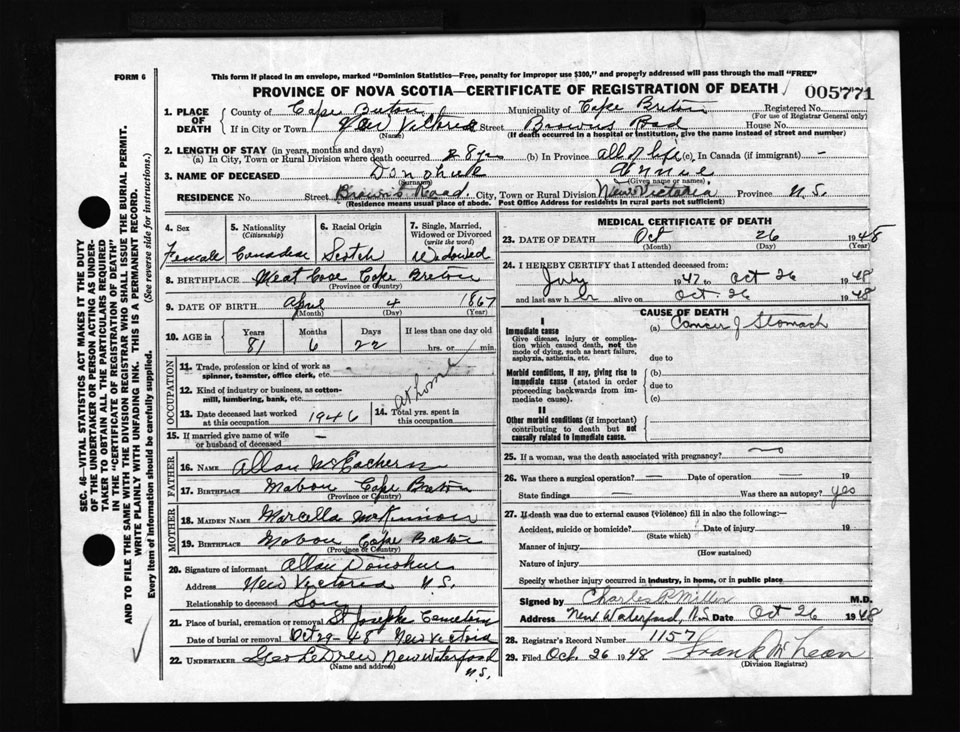 FORM 6
This form if placed in an envelope, marked "Dominion Statistics—Free, penalty for improper use $300," and properly addressed will pass through the mail "FREE"
PROVINCE OF NOVA SCOTIA—CERTIFICATE OF REGISTRATION OF DEATH
005771
1. PLACE OF DEATH
County of Cape Breton Municipality of Cape Breton Registered No.
(For use of Registrar General only)
If in City or Town New Victoria Street Browns Road House No.
(Name) (If death occurred in a hospital or institution, give the name instead of street and number)
2. LENGTH OF STAY (in years, months and days)
(a) In City, Town or Rural Division where death occurred 28 yrs (b) In Province all of life (c) In Canada (if immigrant) —
3. NAME OF DECEASED Donohue Annie
(Surname) (Given name or names)
RESIDENCE No. Street Brown's Road City, Town or Rural Division New Victoria Province N.S.
(Residence means usual place of abode. Post Office Address for residents in rural parts not sufficient)
4. Sex Female
5. Nationality (Citizenship) Canadian
6. Racial Origin Scotch
7. Single, Married, Widowed or Divorced (write the word) Widowed
8. BIRTHPLACE Cape Breton
(Province or Country)
9. DATE OF BIRTH April 4 1867
(Month) (Day) (Year)
10. AGE in Years Months Days If less than one day old
81 6 22 hrs. or min.
OCCUPATION
11. Trade, profession or kind of work as spinner, teamster, office clerk, etc.
12. Kind of industry or business, as cotton-mill, lumbering, bank, etc. at home
13. Date deceased last worked at this occupation 1946
14. Total yrs. spent in this occupation
15. If married give name of wife or husband of deceased —
FATHER
16. NAME Allan McEachern
17. BIRTHPLACE Mabou Cape Breton
(Province or Country)
MOTHER
18. MAIDEN NAME Marcella McKinnon
19. BIRTHPLACE Mabou Cape Breton
(Province or Country)
20. Signature of informant Allan Donohue
Address New Victoria N.S.
Relationship to deceased Son
21. Place of burial, cremation or removal St Josephs Cemetery
Date of burial or removal Oct 29-48 New Victoria
22. UNDERTAKER Geo LeDrew New Waterford
(Name and address) N.S.
MEDICAL CERTIFICATE OF DEATH
23. DATE OF DEATH Oct 26 1948
(Month) (Day) (Year)
24. I HEREBY CERTIFY that I attended deceased from:
July 1947 to Oct 26 1948
and last saw her alive on Oct. 26 1948
CAUSE OF DEATH
I
Immediate cause
Give disease, injury or complication which caused death, not the mode of dying, such as heart failure, asphyxia, asthenia, etc.
(a) Cancer of Stomach
due to
Morbid conditions, if any, giving rise to immediate cause (stated in order proceeding backwards from immediate cause).
(b)
due to
(c)
II
Other morbid conditions (if important) contributing to death but not causally related to immediate cause.
25. If a woman, was the death associated with pregnancy? no
26. Was there a surgical operation? — Date of operation — 19
State findings — Was there autopsy? yes
27. If death was due to external causes (violence) fill in also the following:—
Accident, suicide or homicide? Date of injury 19
(State which)
Manner of injury
(How sustained)
Nature of injury
Specify whether injury occurred in industry, in home, or in public place
Signed by Charles Miller M.D.
Address New Waterford, N.S. Date Oct 26 1948
28. Registrar's Record Number 1157
29. Filed Oct. 26 1948 Frank McLean
(Division Registrar)
SEC. 46—VITAL STATISTICS ACT MAKES IT THE DUTY
OF THE UNDERTAKER OR PERSON ACTING AS UNDER-
TAKER TO OBTAIN ALL THE PARTICULARS REQUIRED
IN THE "CERTIFICATE OF REGISTRATION OF DEATH"
AND TO FILE THE SAME WITH THE DIVISION REGISTRAR WHO SHALL ISSUE THE BURIAL PERMIT.
WRITE PLAINLY WITH UNFADING INK. THIS IS A PERMANENT RECORD.
Every item of information should be carefully supplied. (See reverse side for instructions.)